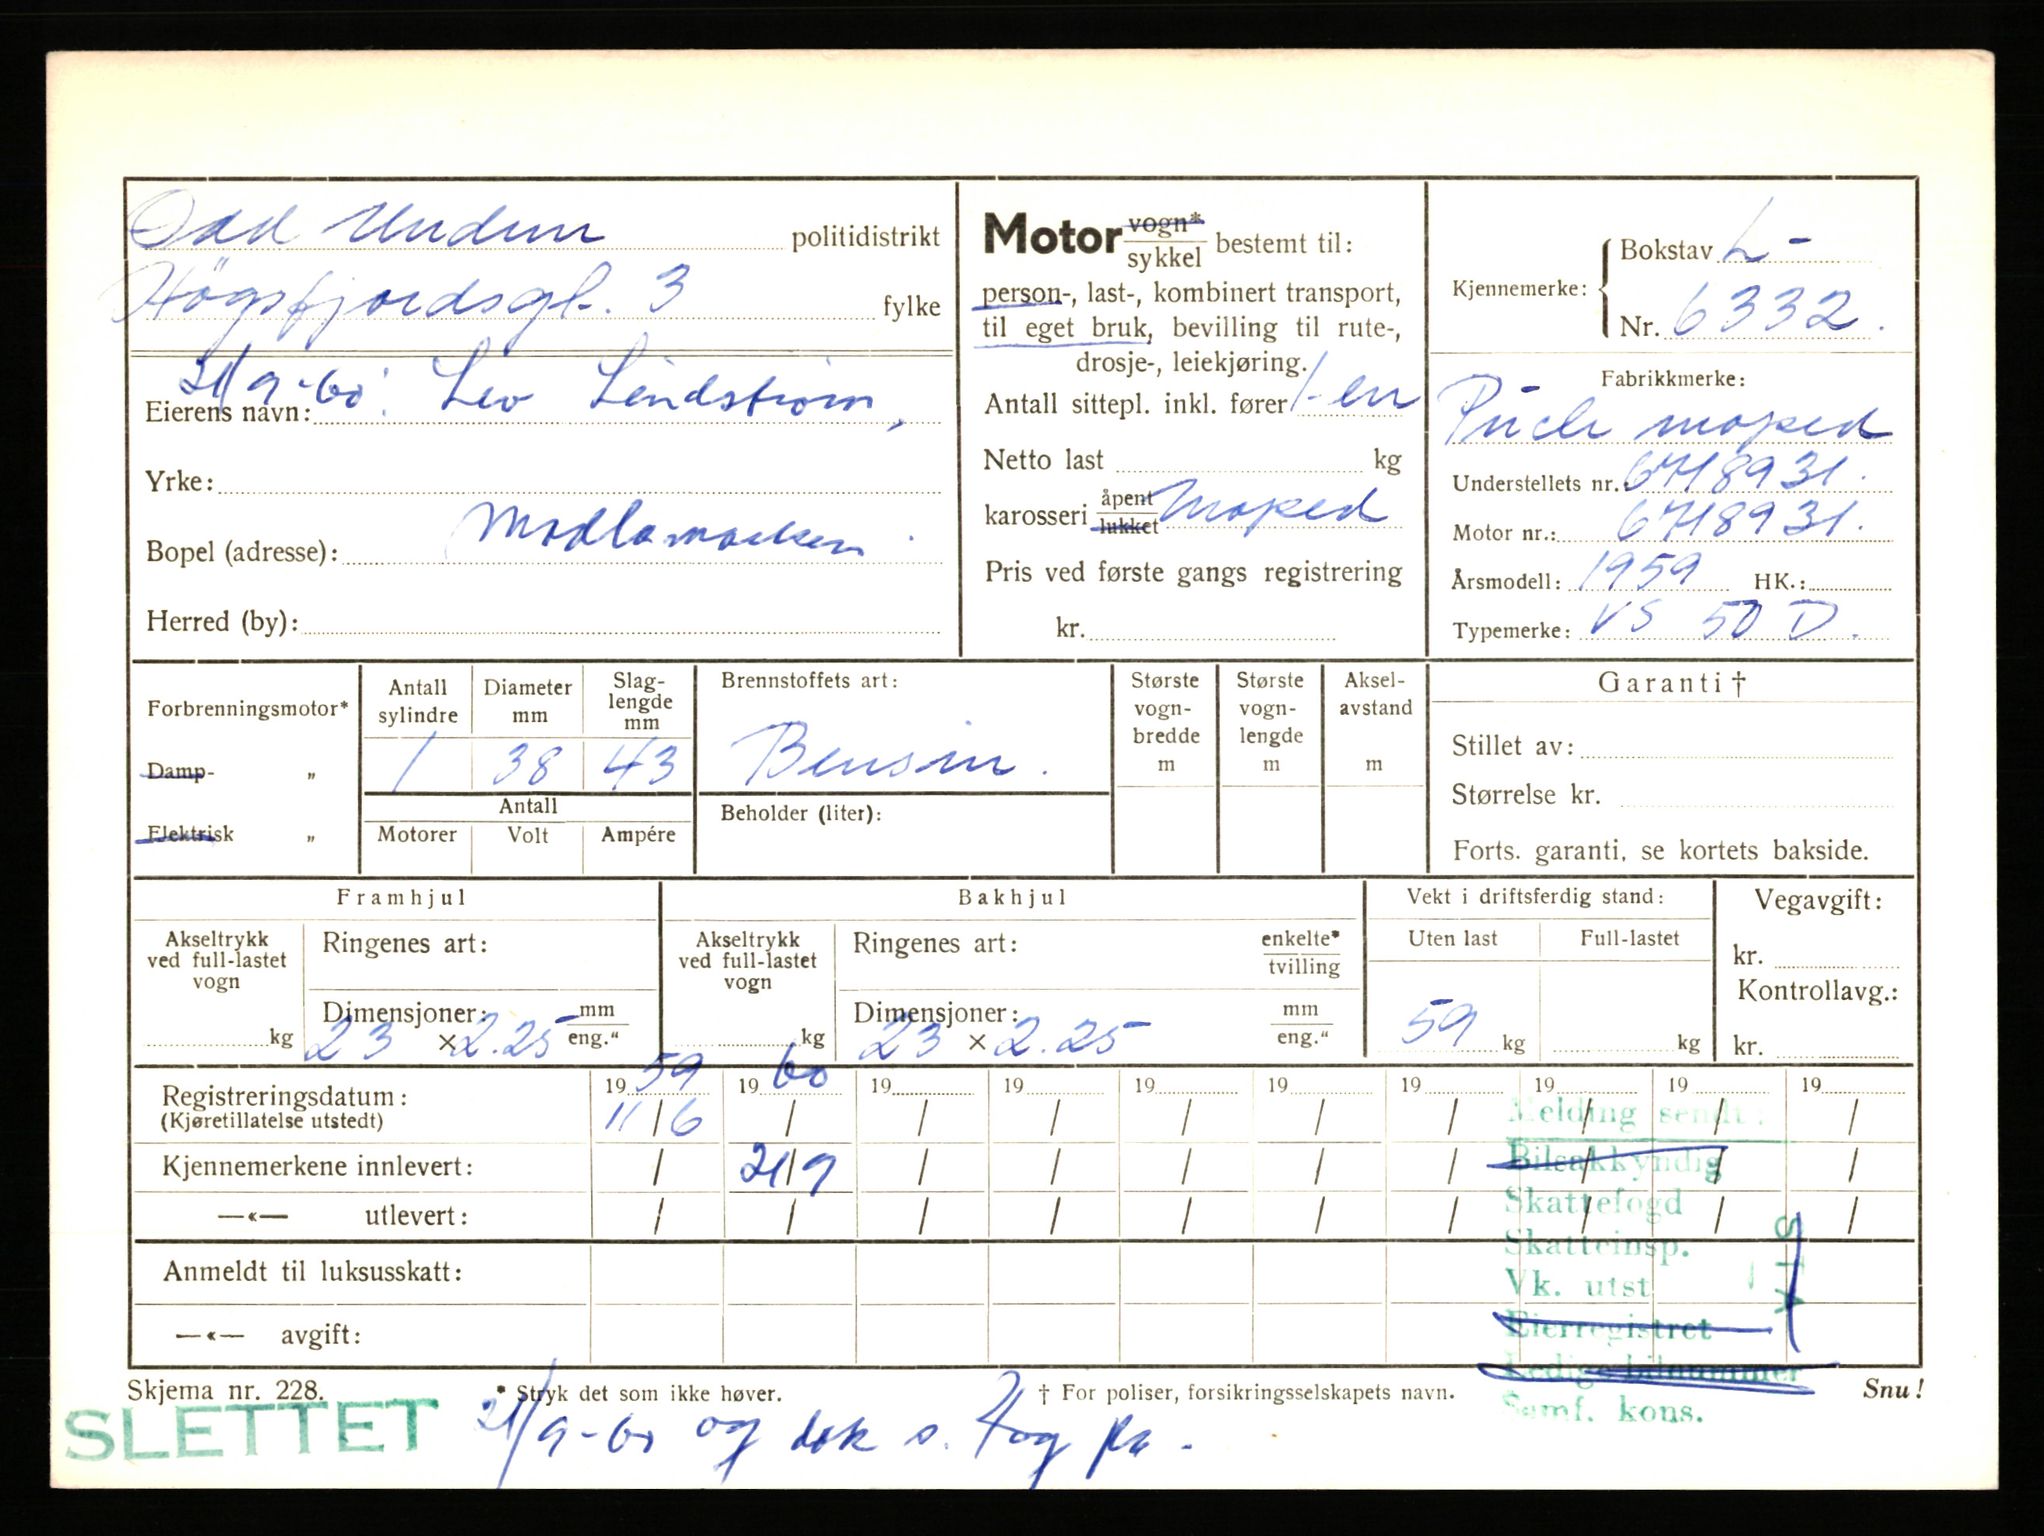 Odd Undem politidistrikt
Högsfjordsgt. 3 fylke
21/9-60: Leo Lindstrøm,
Eierens navn:
Yrke:
Bopel (adresse): Madlamarken
Herred (by):
Motor vogn* / sykkel bestemt til:
person-, last-, kombinert transport,
til eget bruk, bevilling til rute-,
drosje-, leiekjøring.
Antall sittepl. inkl. fører 1-en
Netto last kg
karosseri åpent / lukket Moped
Pris ved første gangs registrering
kr.
Kjennemerke: Bokstav L-
Nr. 6332.
Fabrikkmerke:
Puch moped
Understellets nr.: 6718931.
Motor nr.: 6718931.
Årsmodell: 1959 HK.:
Typemerke: VS 50 D.
Forbrenningsmotor*
Damp- „
Elektrisk „
Antall sylindre
Diameter mm
Slag-lengde mm
1 38 43
Antall
Motorer Volt Ampére
Brennstoffets art:
Bensin.
Beholder (liter):
Største vogn-bredde m
Største vogn-lengde m
Aksel-avstand m
Garanti †
Stillet av:
Størrelse kr.
Forts. garanti, se kortets bakside.
Framhjul
Akseltrykk ved full-lastet vogn
kg
Ringenes art:
Dimensjoner: mm / eng."
23 x 2.25
Bakhjul
Akseltrykk ved full-lastet vogn
kg
Ringenes art: enkelte* / tvilling
Dimensjoner: mm / eng."
23 x 2.25
Vekt i driftsferdig stand:
Uten last Full-lastet
59 kg kg
Vegavgift:
kr.
Kontrollavg.:
kr.
Registreringsdatum: 19 59 19 60 19 19 19 19 19 19 19 19
(Kjøretillatelse utstedt) 11/6 / / / / / / / / /
Kjennemerkene innlevert: / 21/9 / / / / / / / /
—«— utlevert: / / / / / / / / / /
Anmeldt til luksusskatt:
—«— avgift:
Melding sendt:
Bilsakkyndig
Skattefogd
Skatteinsp.
Vk. utst
Eierregistret
Ledige bilnummer
Samf. kons.
STA
Skjema nr. 228.
* Stryk det som ikke høver.
† For poliser, forsikringsselskapets navn.
Snu!
SLETTET 21/9-60 og dok s.